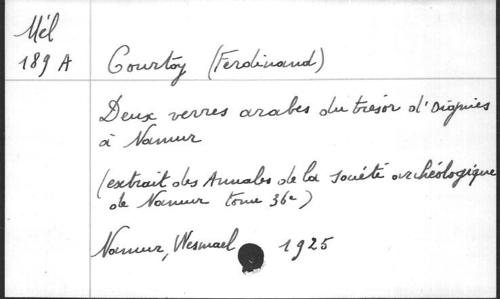 Mél
189 A
Courtoy (Ferdinand)
Deux verres arabes du trésor d'Oignies
à Namur
(extrait des Annales de la société archéologique
de Namur tome 36e)
Namur, Wesmael 1925